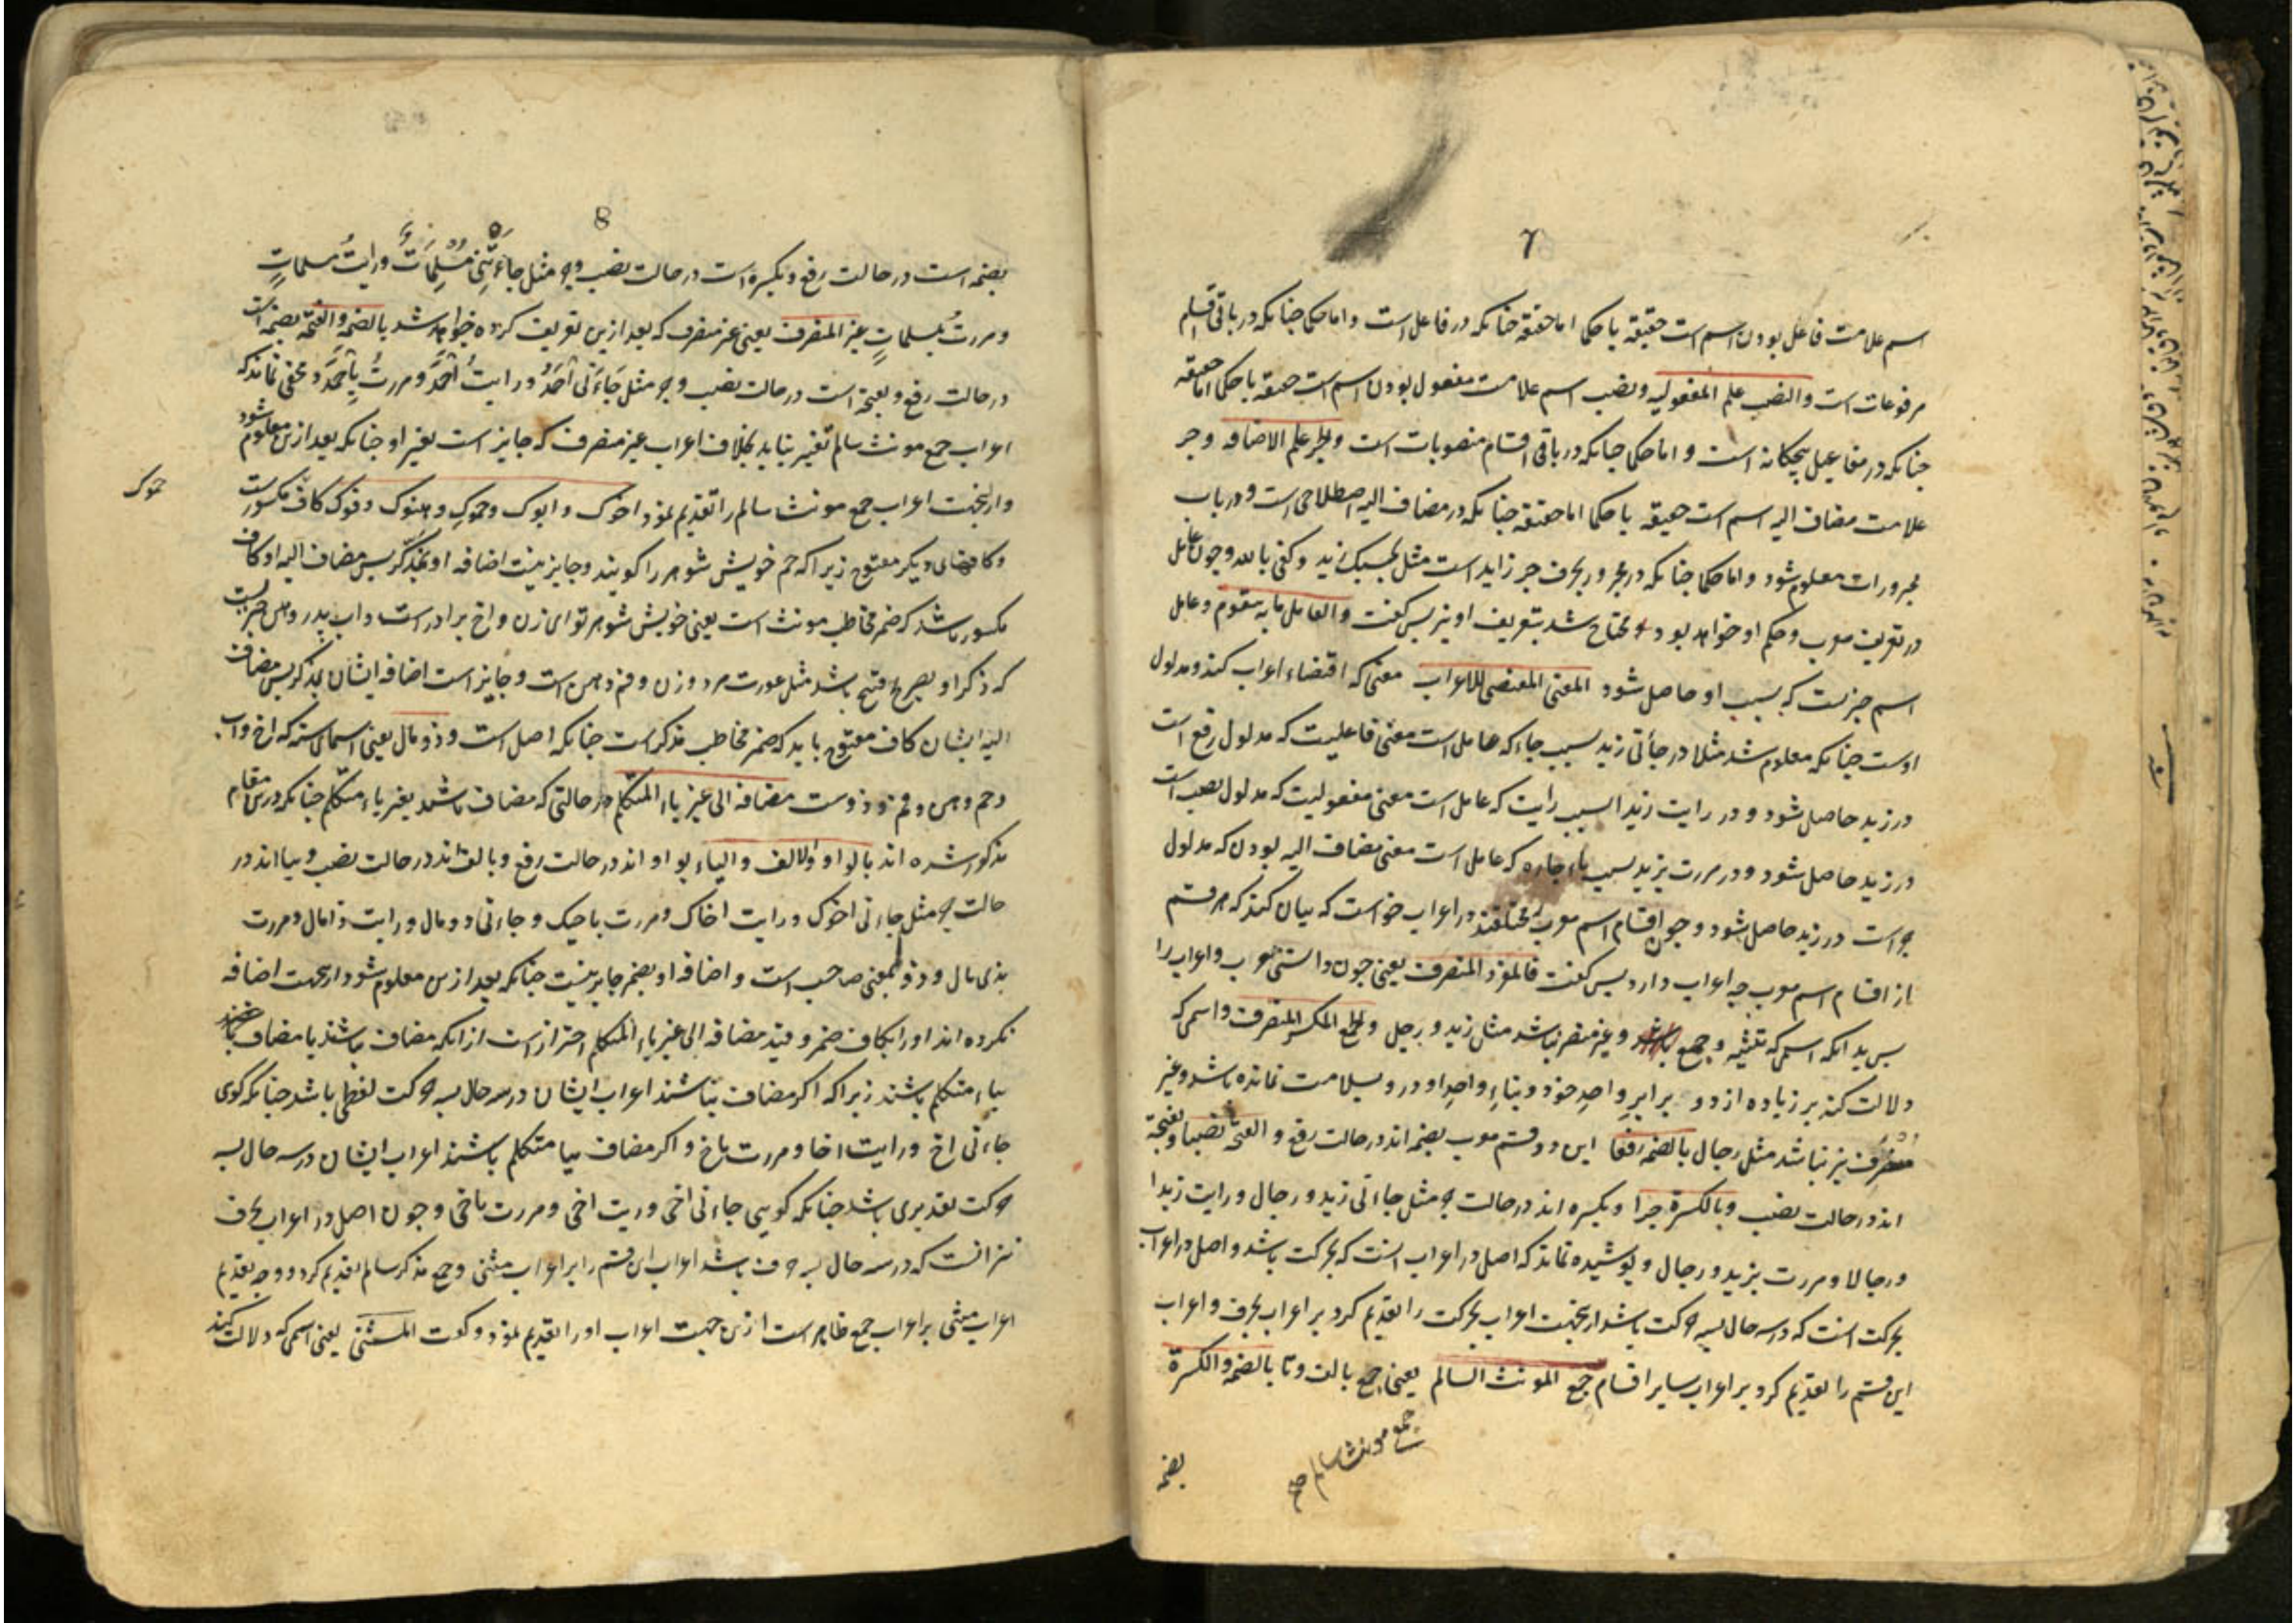 ۷
اسم علامت فاعل بودن اسم است حقیقة یا حکما اما حقیقة چنانکه در فاعل است و اما حکما چنانکه در باقی اقسام
مرفوعات است والنصب علم المفعولیه ونصب اسم علامت مفعول بودن اسم است حقیقة یا حکما اما حقیقة
چنانکه در مفاعیل پنجکانه است و اما حکما چنانکه در باقی اقسام منصوبات است والجر علم الاضافه وجر
علامت مضاف الیه اسم است حقیقة یا حکما اما حقیقة چنانکه در مضاف الیه اصطلاحی است و در باب
مجرورات معلوم شود واما حکما چنانکه در مجرور بحرف جر زاید است مثل بحسبک زید وکفی بالله وچون عامل
در تعریف معرب وحکم او خواهد بود و محتاج شد بتعریف او نیز پس گفت والعامل مابه یتقوم وعامل
اسم چیزیست که بسبب او حاصل شود المعنی المقتضی للاعراب معنی که اقتضاء اعراب کند ومدلول
اوست چنانکه معلوم شد مثلا در جائنی زید بسبب جاء که عامل است معنی فاعلیت که مدلول رفع است
در زید حاصل شود و در رایت زیدا بسبب رایت که عامل است معنی مفعولیت که مدلول نصب است
در زید حاصل شود و در مررت بزید بسبب باء جاره که عامل است معنی مضاف الیه بودن که مدلول
جر است در زید حاصل شود و چون اقسام اسم معرب مختلفند در اعراب خواست که بیان کند که هر قسم
از اقسام اسم معرب چه اعراب دارد پس گفت فالمفرد المنصرف یعنی چون دانستی معرب واعراب را
پس بدانکه اسمی که تثنیه و جمع وغیر منصرف نباشد مثل زید و رجل والجمع المکسر المنصرف واسمی که
دلالت کند بر زیاده از دو برابر واحد خود و بناء واحد او در و بسلامت نمانده باشد وغیر
منصرف نیز نباشد مثل رجال بالضمه رفعا این دو قسم معرب بضمه اند در حالت رفع و الفتحة نصبا وبفتحة
اند در حالت نصب وبالکسرة جرا و بکسره اند در حالت جر مثل جاءنی زید و رجال ورایت زیدا
ورجالا ومررت بزید ورجال و پوشیده نماند که اصل در اعراب آنست که بحرکت باشد واصل در اعراب
بحرکت آنست که در سه حال بسه حرکت باشد ازینجهت اعراب بحرکت را تقدیم کرد بر اعراب بحرف واعراب
این قسم را تقدیم کرد بر اعراب سایر اقسام جمع المونث السالم یعنی جمع بالف وتا بالضمه والکسرة
جمع مونث سالم
بضمه
8
بضمه است در حالت رفع وبکسره است در حالت نصب وجر مثل جاءَتْنِی مُسْلِمَاتٌ ورایتُ مسلماتٍ
ومررتُ بمسلماتٍ غیر المنصرف یعنی غیر منصرف که بعد ازین تعریف کرده خواهد شد بالضمة والفتحة بضمه است
در حالت رفع وبفتحه است در حالت نصب وجر مثل جَاءَنی اَحْمَدُ ورایتُ اَحْمَدَ ومررتُ بِاَحْمَدَ ومخفی نماند که
اعراب جمع مونث سالم تغیر نیابد بخلاف اعراب غیر منصرف که جایز است تغیر او چنانکه بعد ازین معلوم شود
وازینجهت اعراب جمع مونث سالم را تقدیم نمود اخوک وابوک وحموک وهنوک وفوک کاف مکسورست
حموک
وکافهای دیگر مفتوح زیرا که حم خویش شوهر را گویند وجایز نیست اضافه او بمذکر پس مضاف الیه او کاف
مکسور باشد که ضمیر مخاطب مونث است یعنی خویش شوهر تو ای زن و اخ برادر است و اب پدر وهن چیزیست
که ذکر او بصریح قبیح باشد مثل عورت مرد و زن وفم دهن است وجایز است اضافه ایشان بمذکر پس مضاف
الیه ایشان کاف مفتوح باید که ضمیر مخاطب مذکر است چنانکه اصل است وذو مال یعنی اسمای سته که اخ واب
وحم وهن وفم وذوست مضافة الی غیر یاء المتکلم در حالتی که مضاف باشند بغیر یاء متکلم چنانکه درین مقام
مذکور شده اند بالواو والالف والیاء بواو اند در حالت رفع وبالف اند در حالت نصب وبیا اند در
حالت جر مثل جاءنی اخوک ورایت اخاک ومررت باخیک وجاءنی ذو مال ورایت ذا مال ومررت
بذی مال وذو بمعنی صاحب است واضافه او بضمیر جایز نیست چنانکه بعد ازین معلوم شود ازینجهت اضافه
نکرده اند او را بکاف ضمیر وقید مضافة الی غیر یاء المتکلم احتراز است از آنکه مضاف نباشند یا مضاف باشند
بیاء متکلم باشند زیرا که اگر مضاف نباشند اعراب ایشان در سه حال بسه حرکت لفظی باشد چنانکه گوی
جاءنی اخ ورایت اخا ومررت باخ واگر مضاف بیا متکلم باشند اعراب ایشان در سه حال بسه
حرکت تقدیری باشد چنانکه گویی جاءنی اخی وریت اخی ومررت باخی وچون اصل در اعراب بحرف
نیز آنست که در سه حال بسه حرف باشد اعراب این قسم را بر اعراب مثنی وجمع مذکر سالم تقدیم کرد ووجه تقدیم
اعراب مثنی بر اعراب جمع ظاهر است ازین جهت اعراب او را تقدیم نمود وگفت المثنی یعنی اسمی که دلالت کند